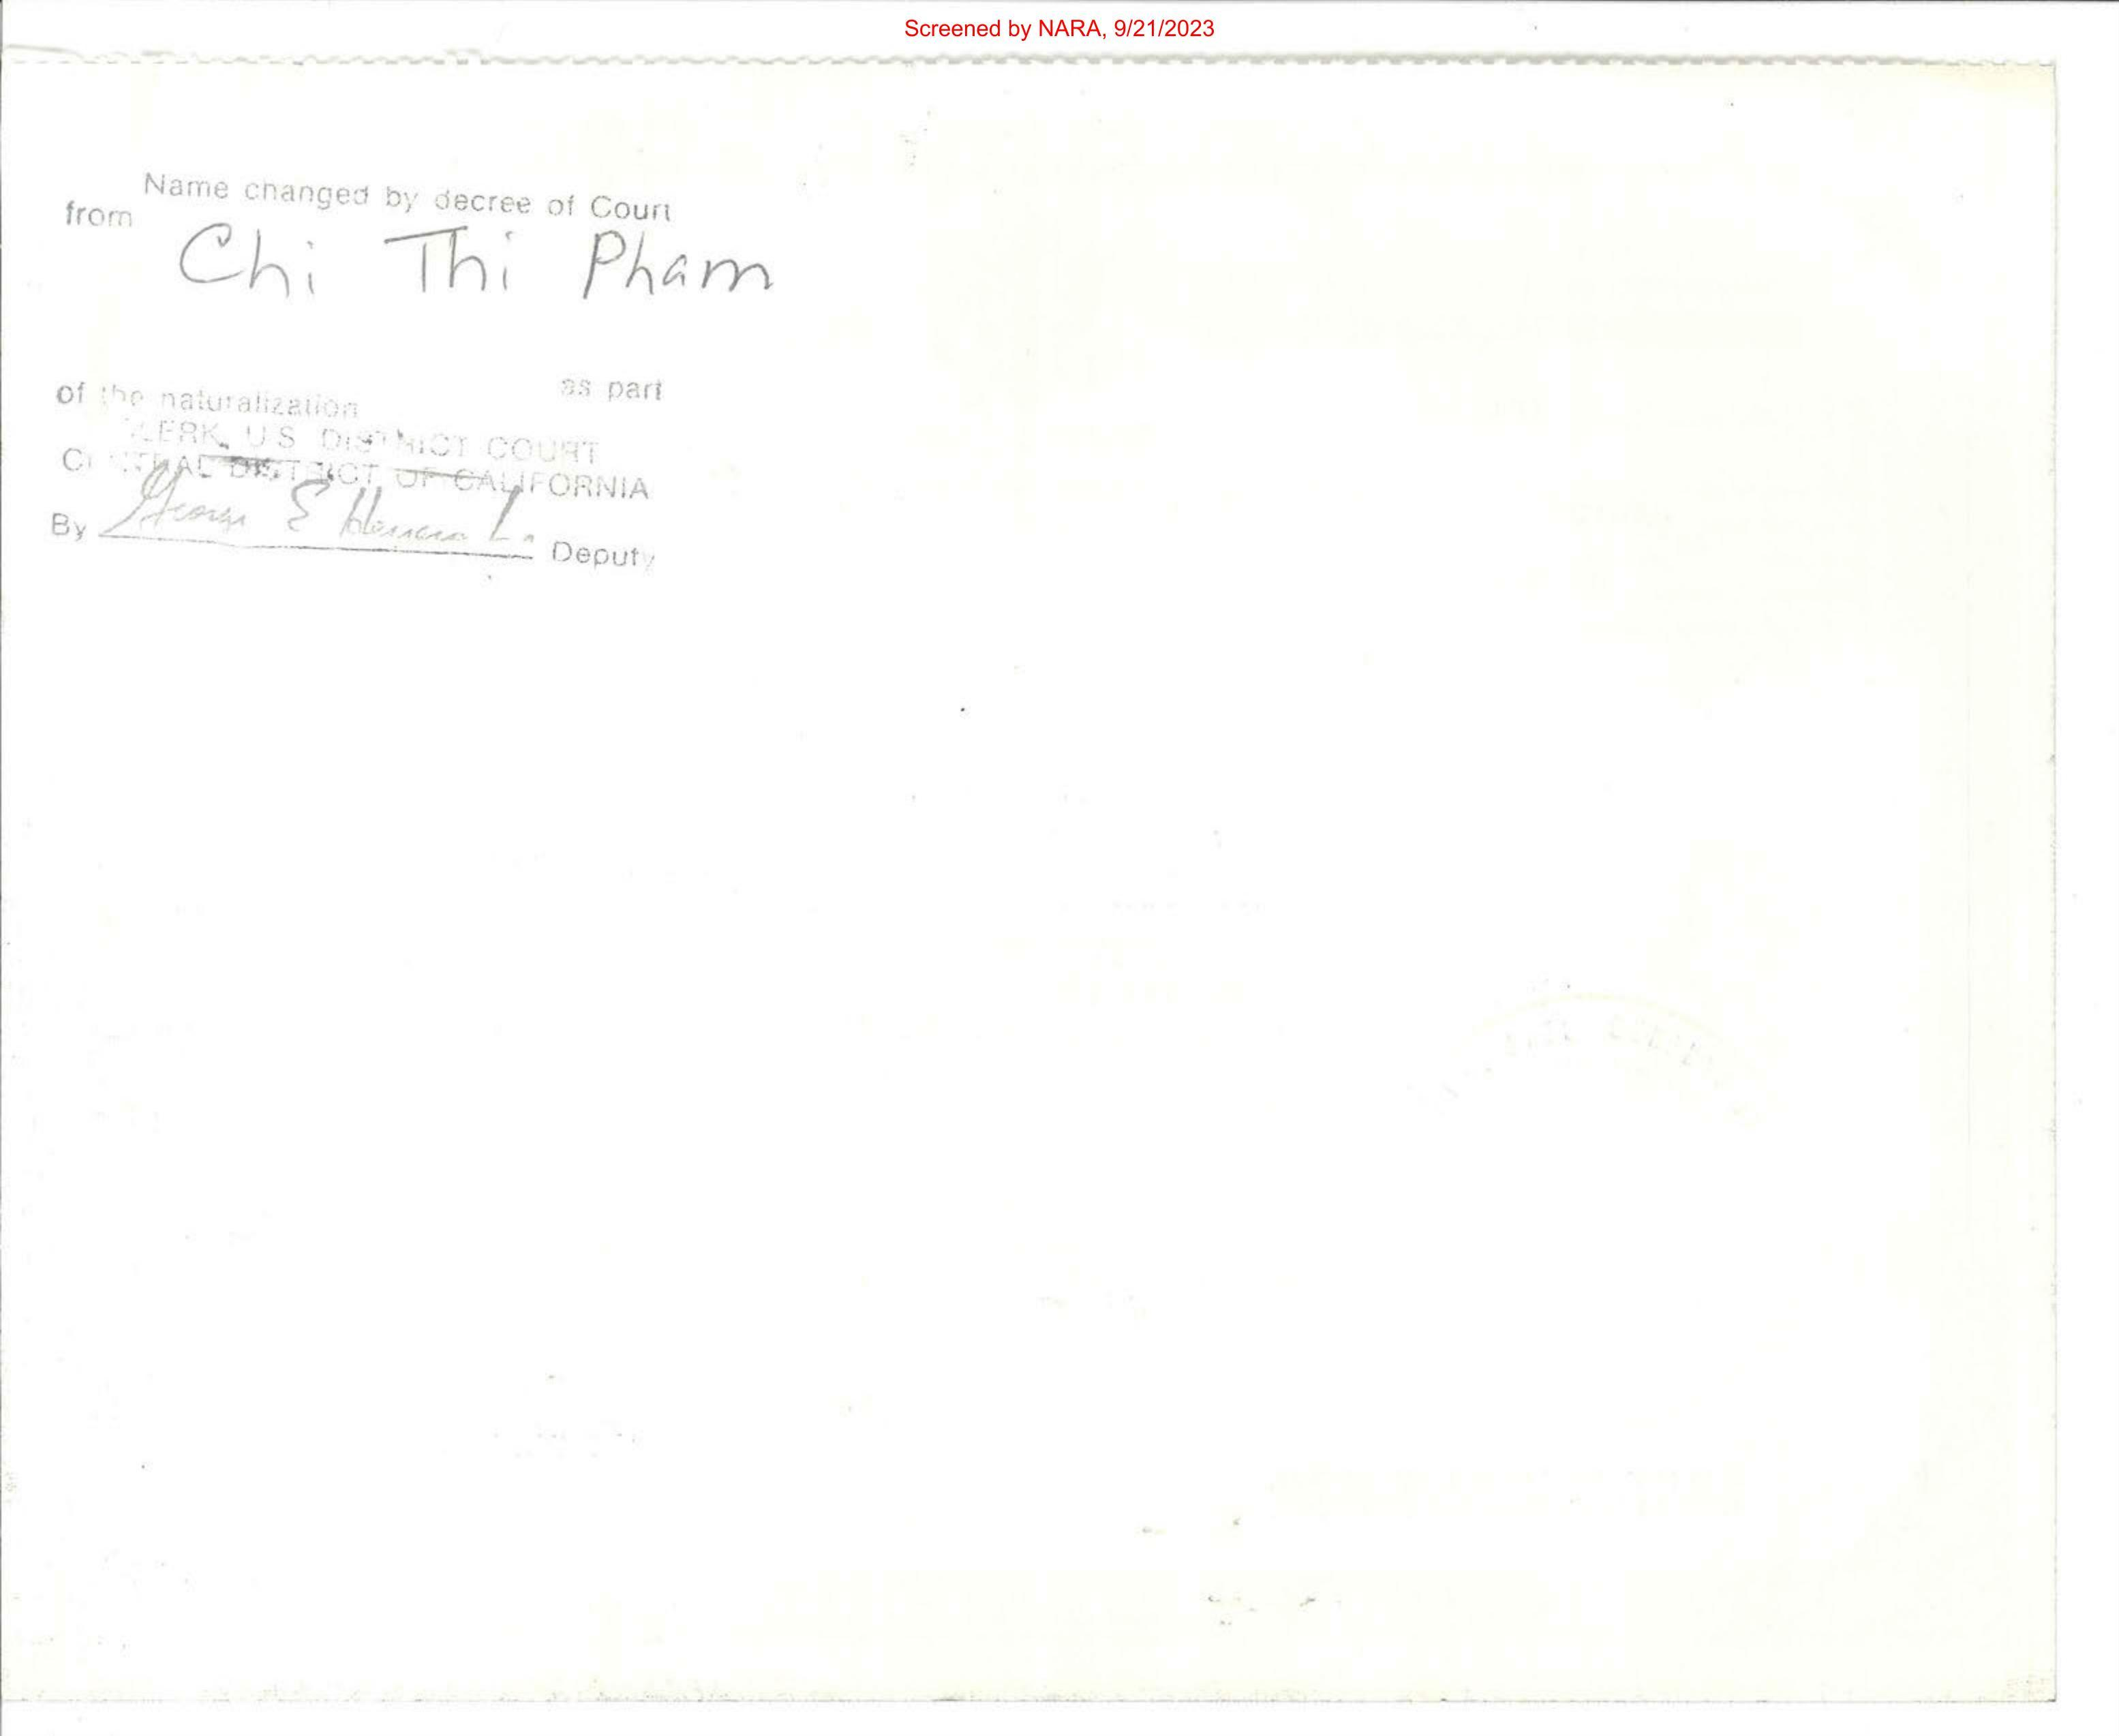 Screened by NARA, 9/21/2023
Name changed by decree of Court
from
Chi Thi Pham
as part
of the naturalization
CLERK, U.S. DISTRICT COURT
CENTRAL DISTRICT OF CALIFORNIA
By George E Deputy